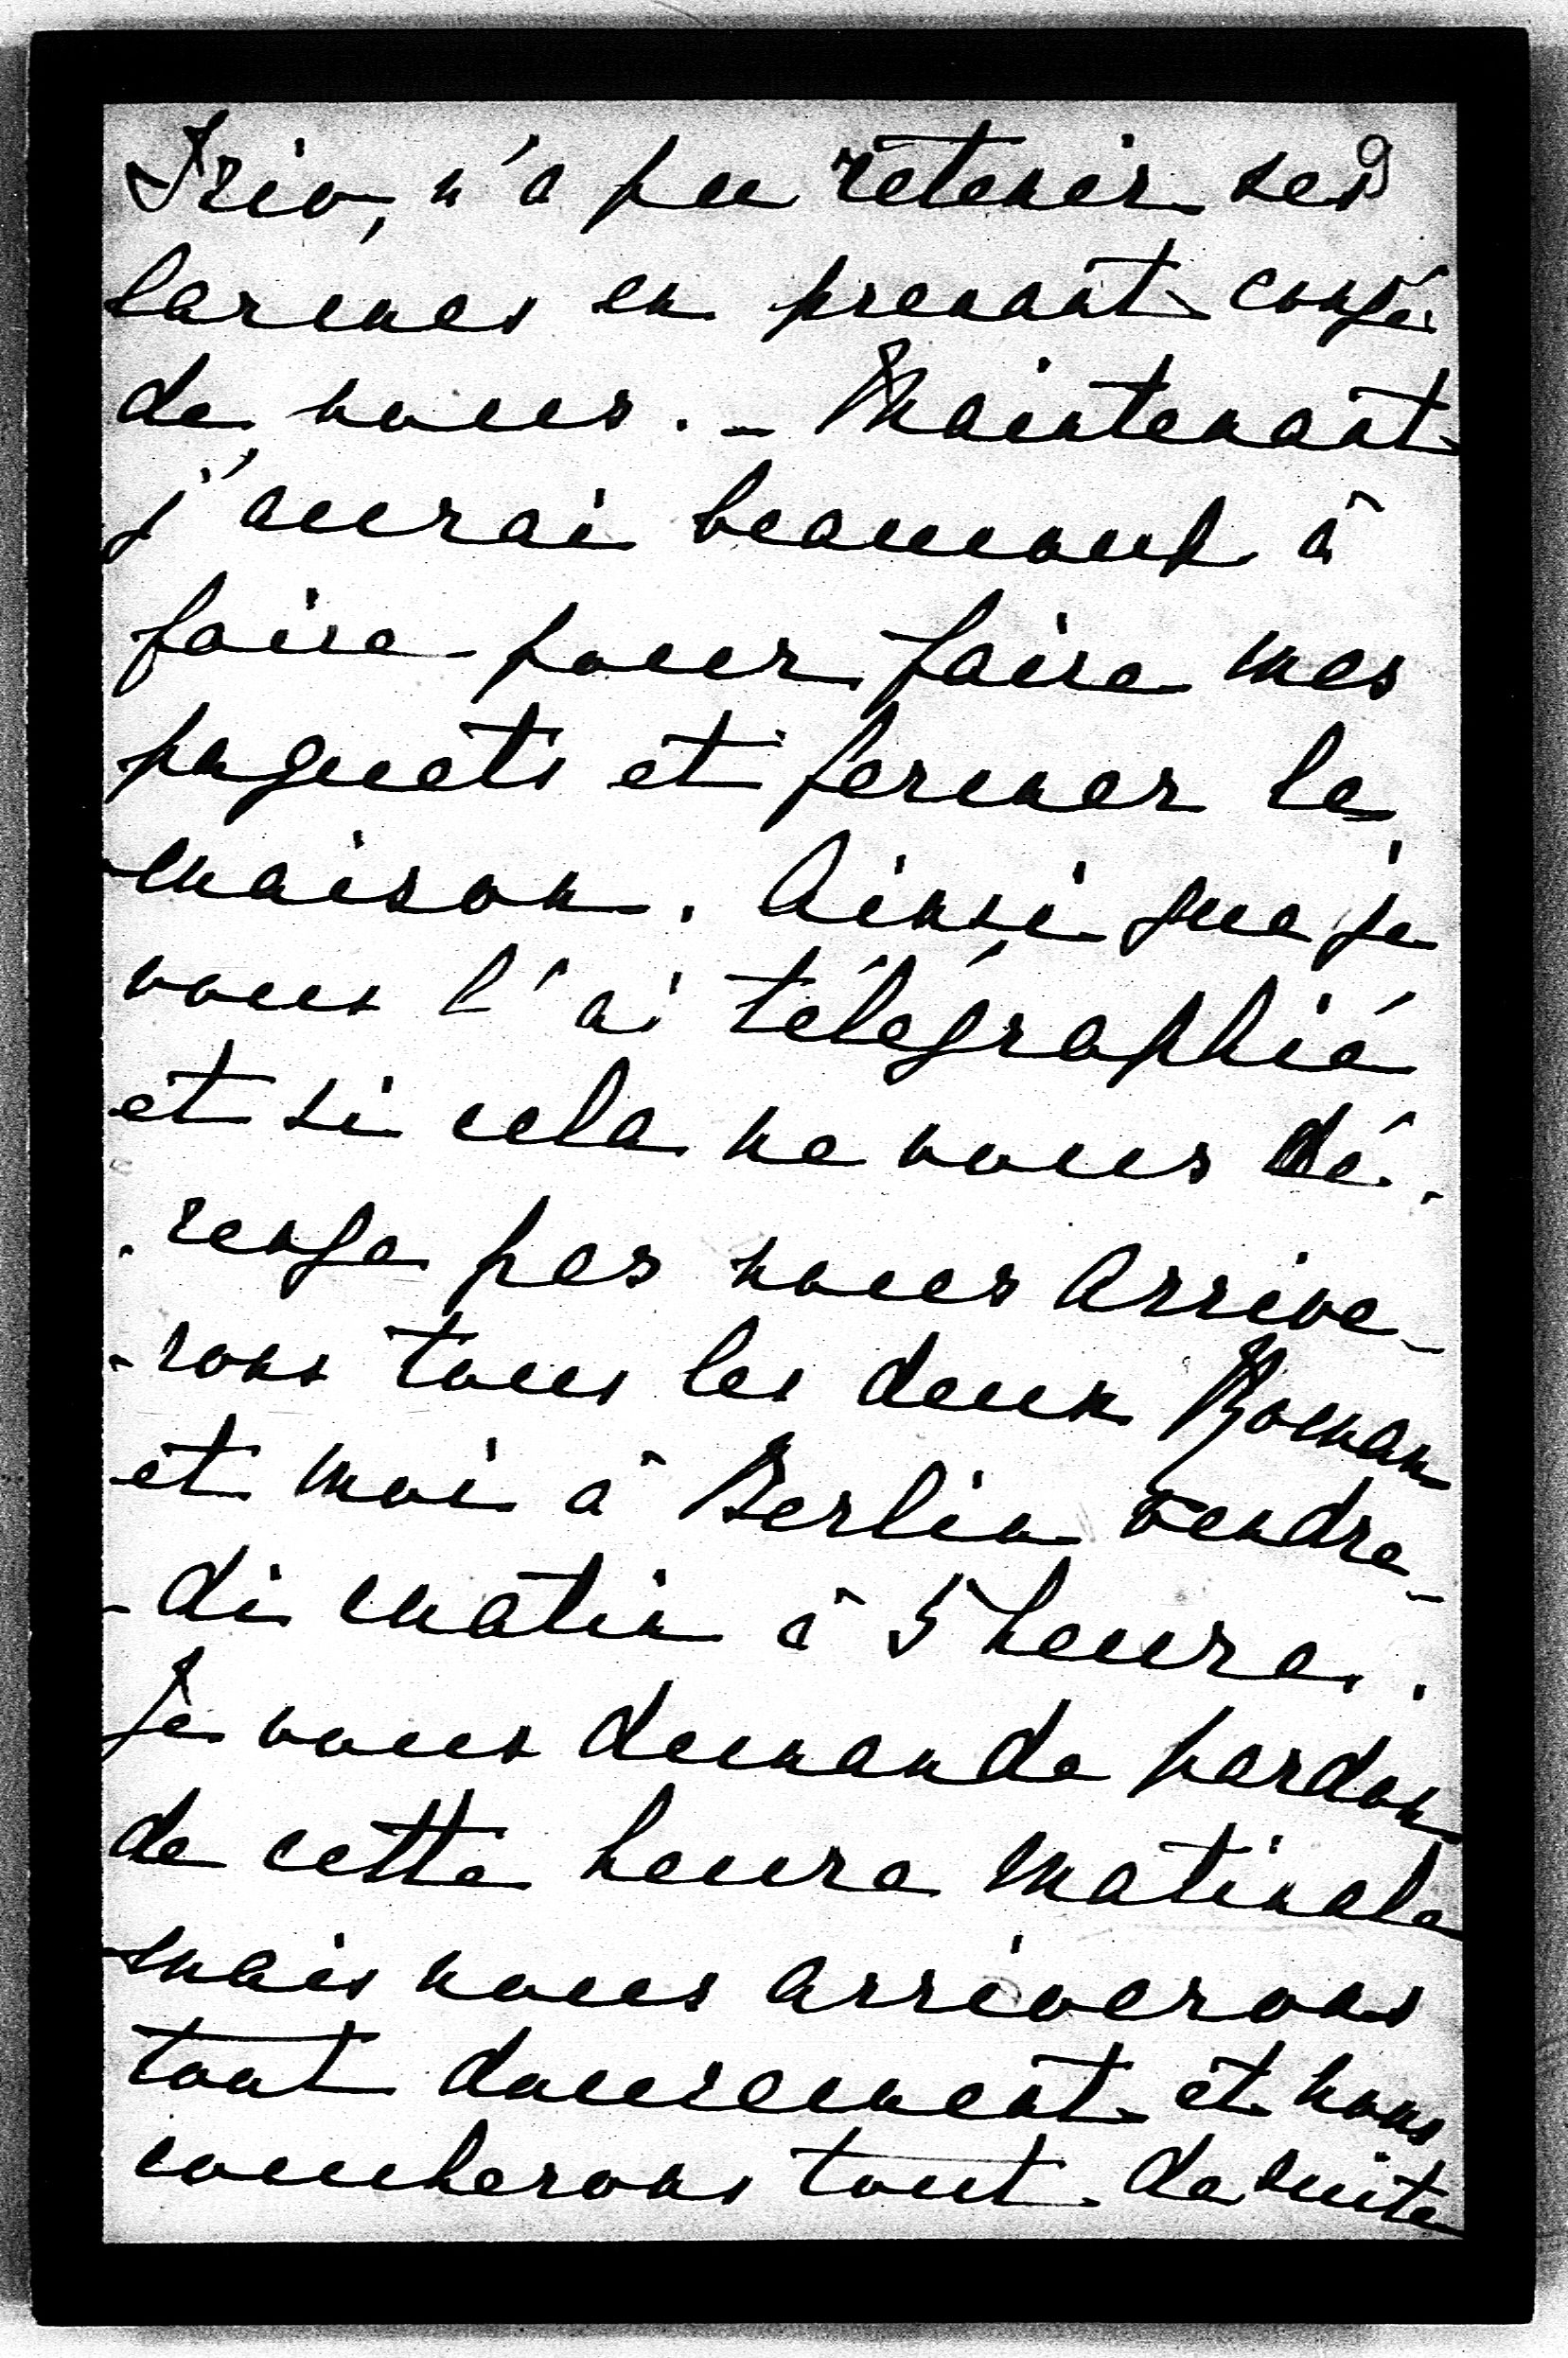 Trio, n'a pu retenir ses
larmes en prenant congé
de nous. – Maintenant
j'aurai beaucoup à
faire pour faire mes
paquets et fermer la
maison. Ainsi que je
vous l'ai télégraphié
et si cela ne vous dé-
-range pas nous arrive-
-rons tous les deux Roman
et moi à Berlin vendre-
-di matin à 5 heure.
Je vous demande pardon
de cette heure matinale
mais nous arriverons
tout doucement et nous
coucherons tout de suite